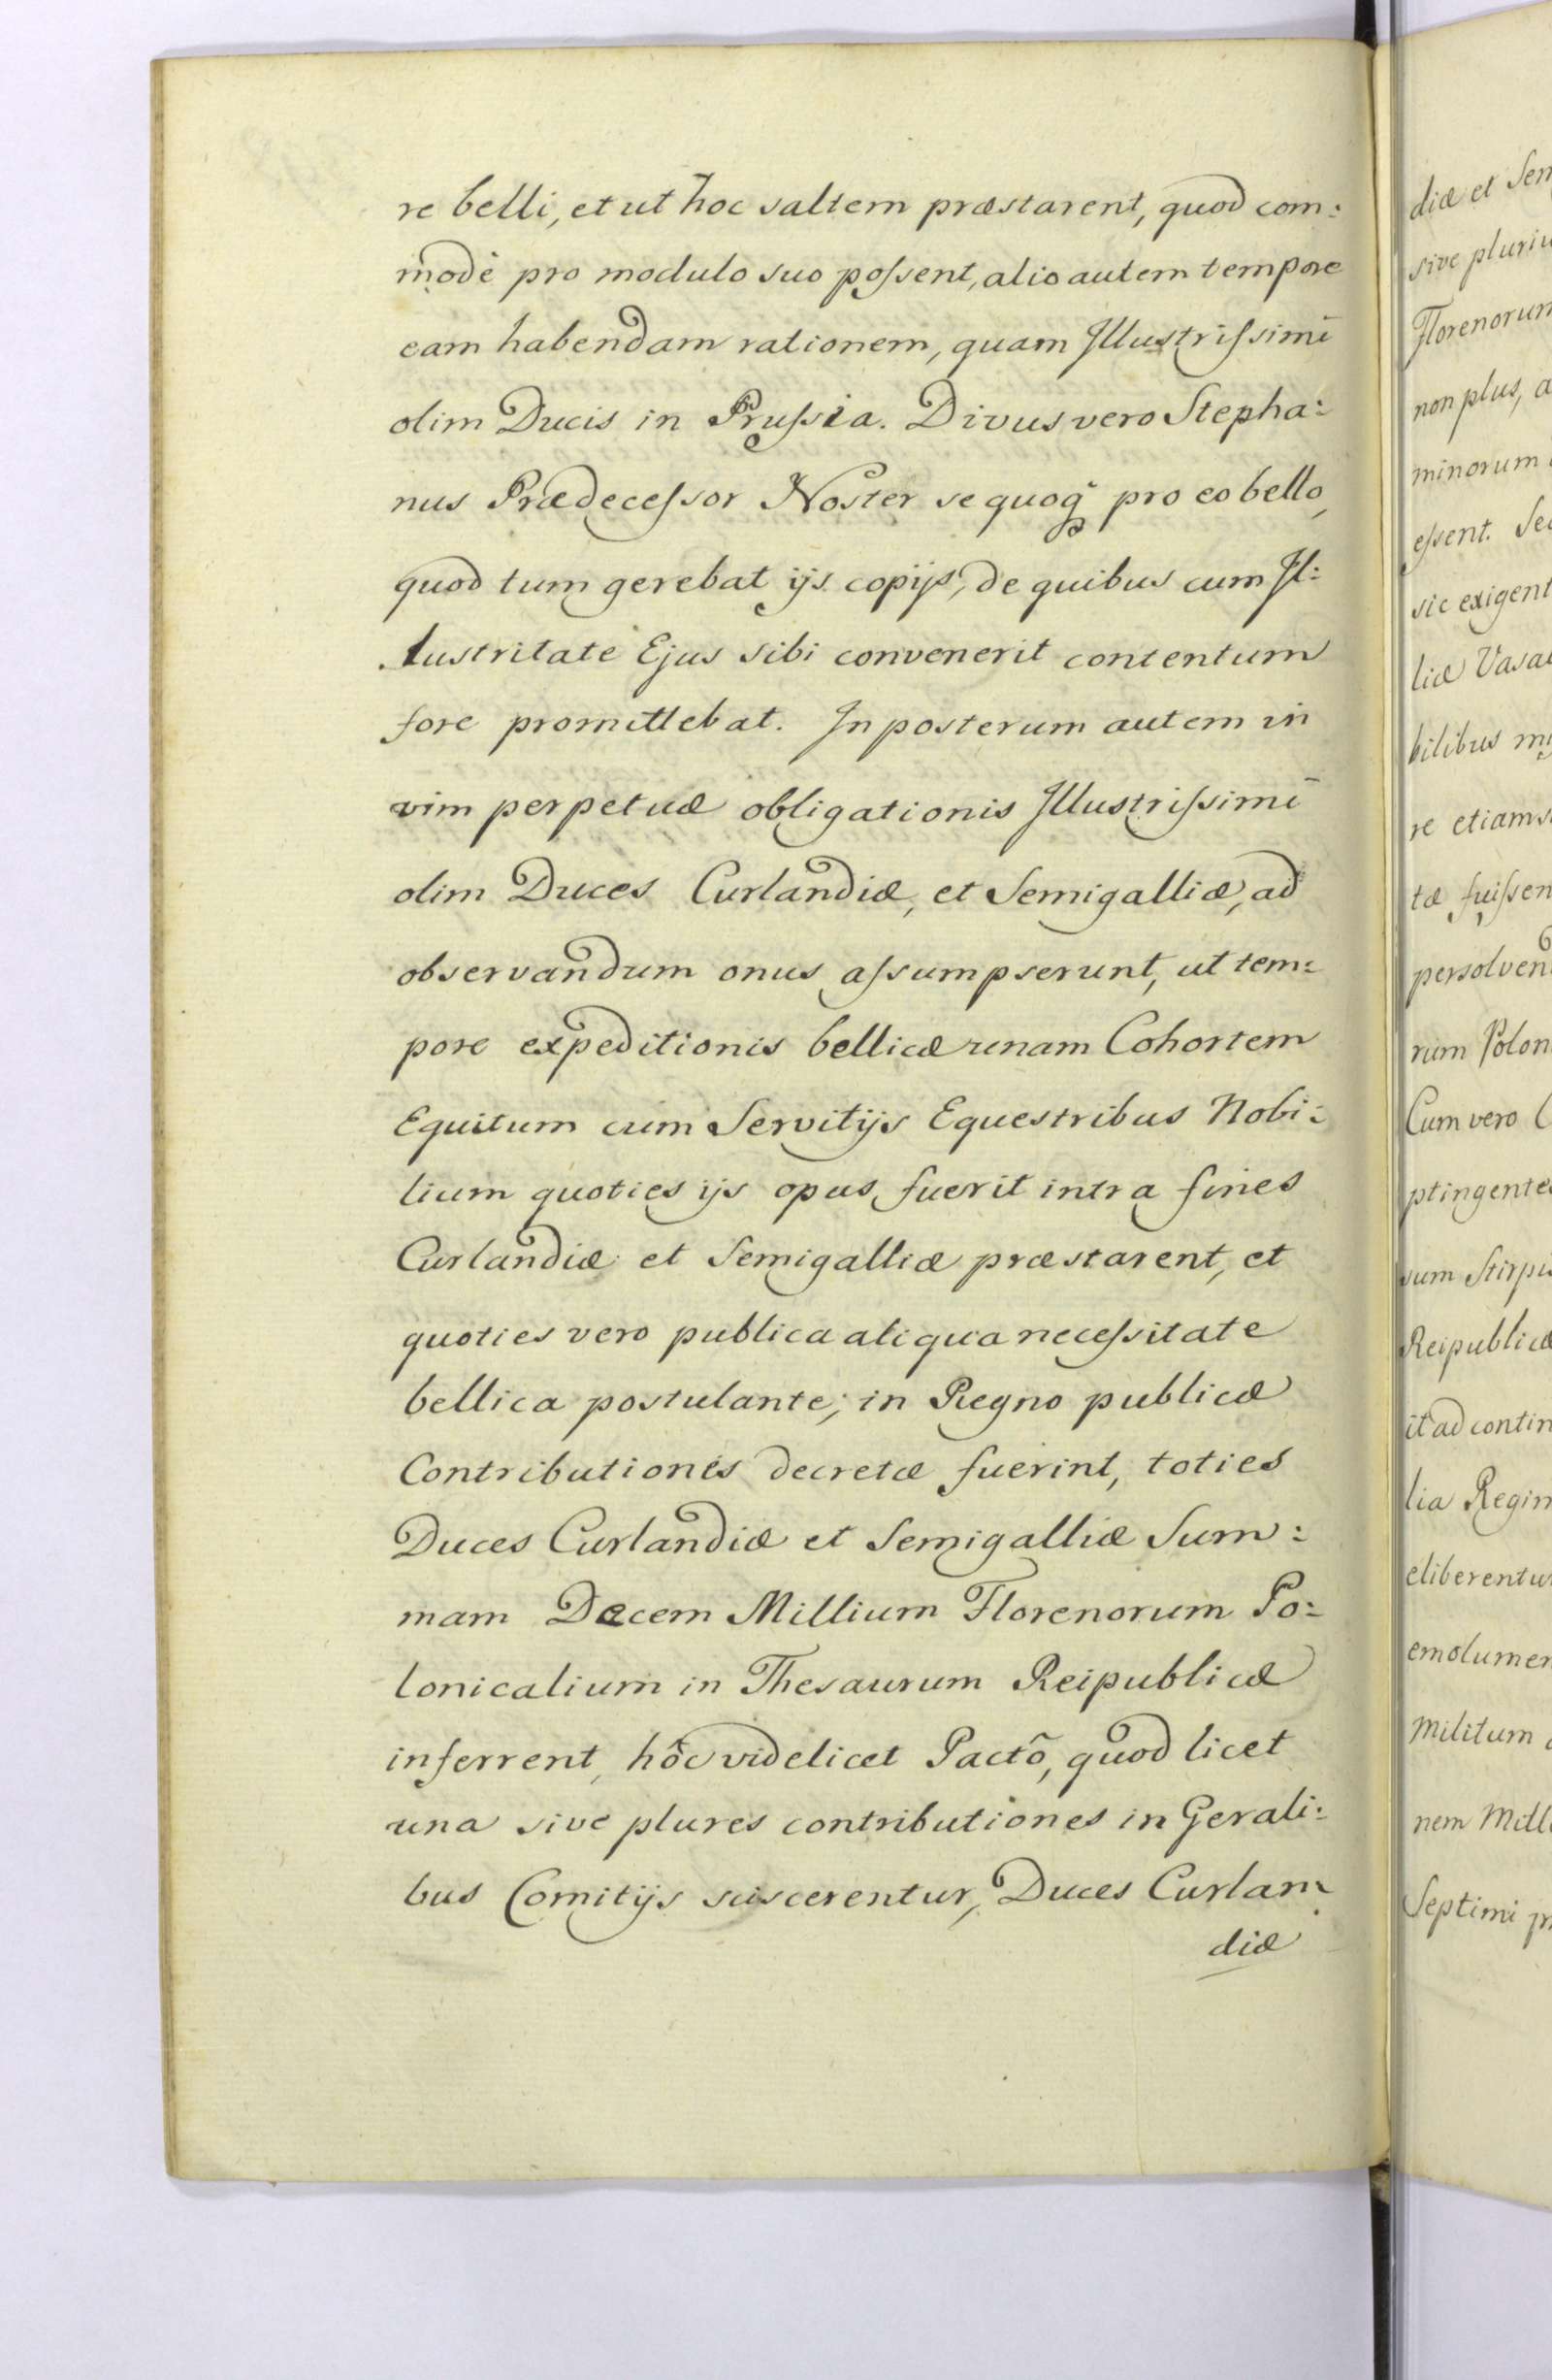 re belli, et ut hoc saltem præstarent, quod com:
modè pro modulo suo poſsent, alio autem tempore
eam habendam rationem, quam Illustriſsimi
olim Ducis in Pruſsia. Divus vero Stepha:
nus Prædeceſsor Noster se quoq̃ pro eo bello,
quod tum gerebat ijs copijs, de quibus cum Il:
lustritate Ejus sibi convenerit contentum
fore promittebat. In posterum autem in
vim perpetuæ obligationis Illustriſsimi
olim Duces Curlandiæ, et Semigalliæ, ad
observandum onus aſsumpserunt, ut tem:
pore expeditionis bellicæ unam Cohortem
Equitum cum Servitijs Equestribus Nobi:
lium quoties ijs opus fuerit intra fines
Curlandiæ et Semigalliæ præstarent, et
quoties vero publica aliqua neceſsitate
bellica postulante; in Regno publicæ
Contributiones decretæ fuerint, toties
Duces Curlandiæ et Semigalliæ Sum:
mam Decem Millium Florenorum Po:
lonicalium in Thesaurum Reipublicæ
inferrent, hôc videlicet Pactõ, quod licet
una sive plures contributiones in Gerali:
bus Comitijs sciscerentur, Duces Curlan:
diæ
diæ et Sem
sive pluriu
Florenorum
non plus, a
minorum
eſsent. Sec
sic exigent
liæ Vasal
bilibus
re etiamsi
tæ fuiſsen
persolven
rum Polon
Cum vero C
ptingentes
sum Stirpis
Reipublicæ
it ad contin
lia Regim
eliberentur
emolumen
Militum
nem Mill
Septimi